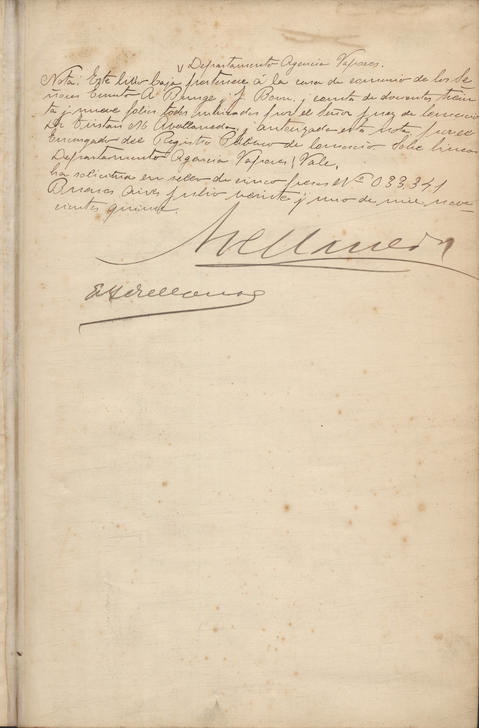 Departamento Agencia Vapores.
Nota: Este libro Caja pertenece á la casa de comercio de los Se-
ñores Ernesto A. Bunge y J. Born, y consta de doscientos trein-
ta y nueve folios todos rubricados por el Señor Juez de Comercio
Dr. Tristán M. Avellaneda, y autorizada esta nota por el
Encargado del Registro Público de Comercio. Sobre lineas
Departamento Agencia Vapores, Vale.
ha solicitud en sello de cinco pesos Nº 033,341
Buenos Aires Julio veinte y uno de mil nove-
cientos quince.
Avellaneda